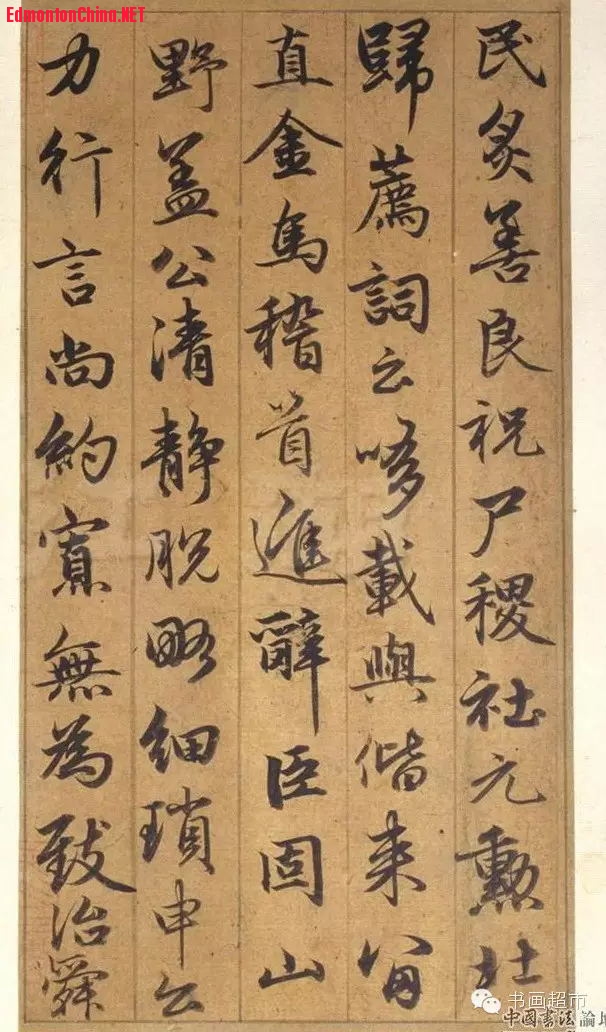 EdmontonChina.NET
民炙善良祝尸稷社元勳社
歸薦詞云嗲載與偕来翁
直金馬稽首進辭臣固山
野盖公清静脱略細瑣申公
力行言尚約寡無為致治舜
书画超市
中国書法論壇